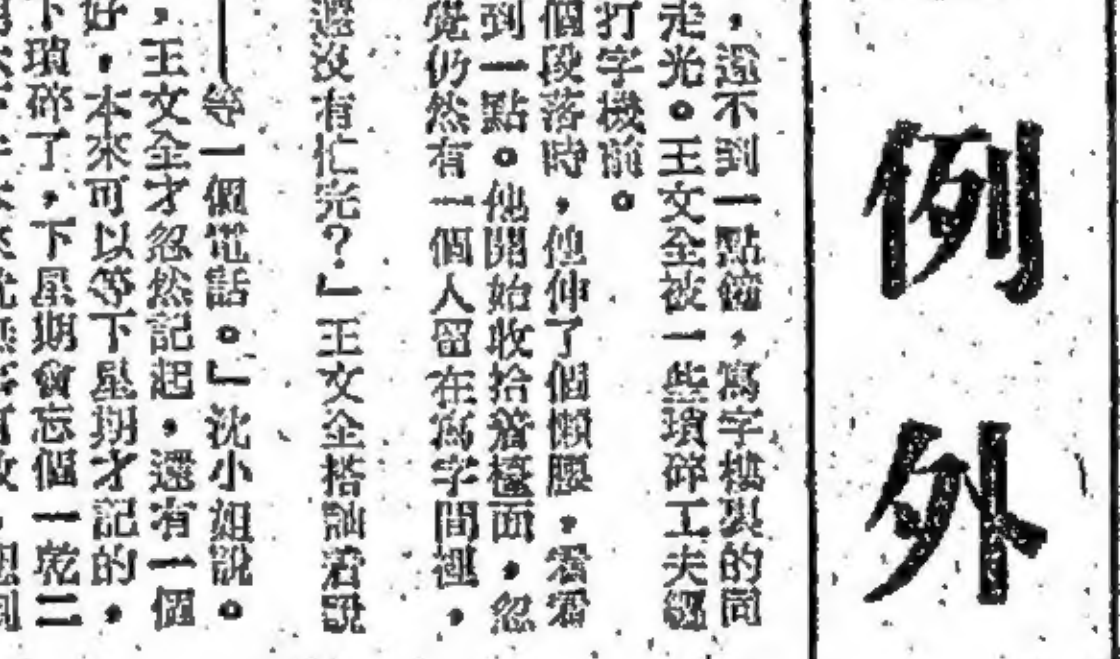 例外
，還不到一點鐘，寫字樓裏的同
走光。王文全被一些瑣碎工夫纏
打字機前。
個段落時，他伸了個懶腰，看看
到一點。他開始收拾着檯面，忽
覺仍然有一個人留在寫字間裡，
還沒有忙完？」王文全搭訕着說
——等一個電話。」沈小姐說。
，王文全才忽然記起，還有一個
好，本來可以等下星期才記的，
下瑣碎了，下星期會忘個一乾二